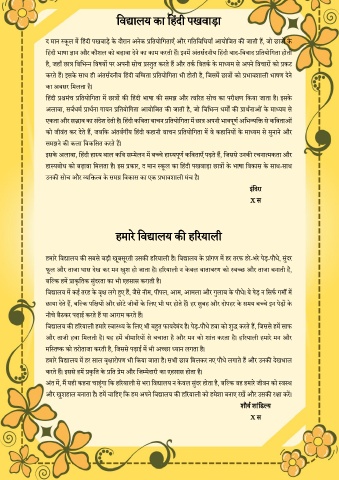 विद्यालय का हिंदी पखवाड़ा
द मान स्कूल में हिंदी पखवाड़े के दौरान अनेक प्रतियोगिताएँ और गतिविधियाँ आयोजित की जाती हैं, जो छात्रों के
हिंदी भाषा ज्ञान और कौशल को बढ़ावा देने का काम करती हैं। इनमें अंतर्सदनीय हिंदी वाद-विवाद प्रतियोगिता होती
है, जहाँ छात्र विभिन्न विषयों पर अपनी सोच प्रस्तुत करते हैं और तर्क वितर्क के माध्यम से अपने विचारों को प्रकट
करते हैं। इसके साथ ही अंतर्सदनीय हिंदी वाग्मिता प्रतियोगिता भी होती है, जिसमें छात्रों को प्रभावशाली भाषण देने
का अवसर मिलता है।
हिंदी प्रश्नमंच प्रतियोगिता में छात्रों की हिंदी भाषा की समझ और त्वरित सोच का परीक्षण किया जाता है। इसके
अलावा, सर्वधर्म प्रार्थना गायन प्रतियोगिता आयोजित की जाती है, जो विभिन्न धर्मों की प्रार्थनाओं के माध्यम से
एकता और सद्भाव का संदेश देती है। हिंदी कविता वाचन प्रतियोगिता में छात्र अपनी भावपूर्ण अभिव्यक्ति से कविताओं
को जीवंत कर देते हैं, जबकि अंतर्वर्गीय हिंदी कहानी वाचन प्रतियोगिता में वे कहानियों के माध्यम से सुनाने और
समझने की कला विकसित करते हैं।
इसके अलावा, हिंदी हास्य बाल कवि सम्मेलन में बच्चे हास्यपूर्ण कविताएँ पढ़ते हैं, जिससे उनकी रचनात्मकता और
हास्यबोध को बढ़ावा मिलता है। इस प्रकार, द मान स्कूल का हिंदी पखवाड़ा छात्रों के भाषा विकास के साथ-साथ
उनकी सोच और व्यक्तित्व के समग्र विकास का एक प्रभावशाली मंच है।
X स
हमारे विद्यालय की हरियाली
हमारे विद्यालय की सबसे बड़ी खूबसूरती उसकी हरियाली है। विद्यालय के प्रांगण में हर तरफ हरे-भरे पेड़-पौधे, सुंदर
फूल और ताजा घास देख कर मन खुश हो जाता है। हरियाली न केवल वातावरण को स्वच्छ और ताजा बनाती है,
बल्कि हमें प्राकृतिक सुंदरता का भी एहसास कराती है।
विद्यालय में कई तरह के वृक्ष लगे हुए हैं, जैसे नीम, पीपल, आम, आमला और गुलाब के पौधे। ये पेड़ न सिर्फ गर्मी में
छाया देते हैं, बल्कि पक्षियों और छोटे जीवों के लिए भी घर होते हैं। हर सुबह और दोपहर के समय बच्चे इन पेड़ों के
नीचे बैठकर पढ़ाई करते हैं या आराम करते हैं।
विद्यालय की हरियाली हमारे स्वास्थ्य के लिए भी बहुत फायदेमंद है। पेड़-पौधे हवा को शुद्ध करते हैं, जिससे हमें साफ
और ताजी हवा मिलती है। यह हमें बीमारियों से बचाता है और मन को शांत करता है। हरियाली हमारे मन और
मस्तिष्क को तरोताजा करती है, जिससे पढ़ाई में भी अच्छा ध्यान लगता है।
हमारे विद्यालय में हर साल वृक्षारोपण भी किया जाता है। सभी छात्र मिलकर नए पौधे लगाते हैं और उनकी देखभाल
करते हैं। इससे हमें प्रकृति के प्रति प्रेम और जिम्मेदारी का एहसास होता है।
अंत में, मैं यही कहना चाहूंगा कि हरियाली से भरा विद्यालय न केवल सुंदर होता है, बल्कि वह हमारे जीवन को स्वस्थ
और खुशहाल बनाता है। हमें चाहिए कि हम अपने विद्यालय की हरियाली को हमेशा बनाए रखें और उसकी रक्षा करें।
शौर्य शांडिल्य
X स